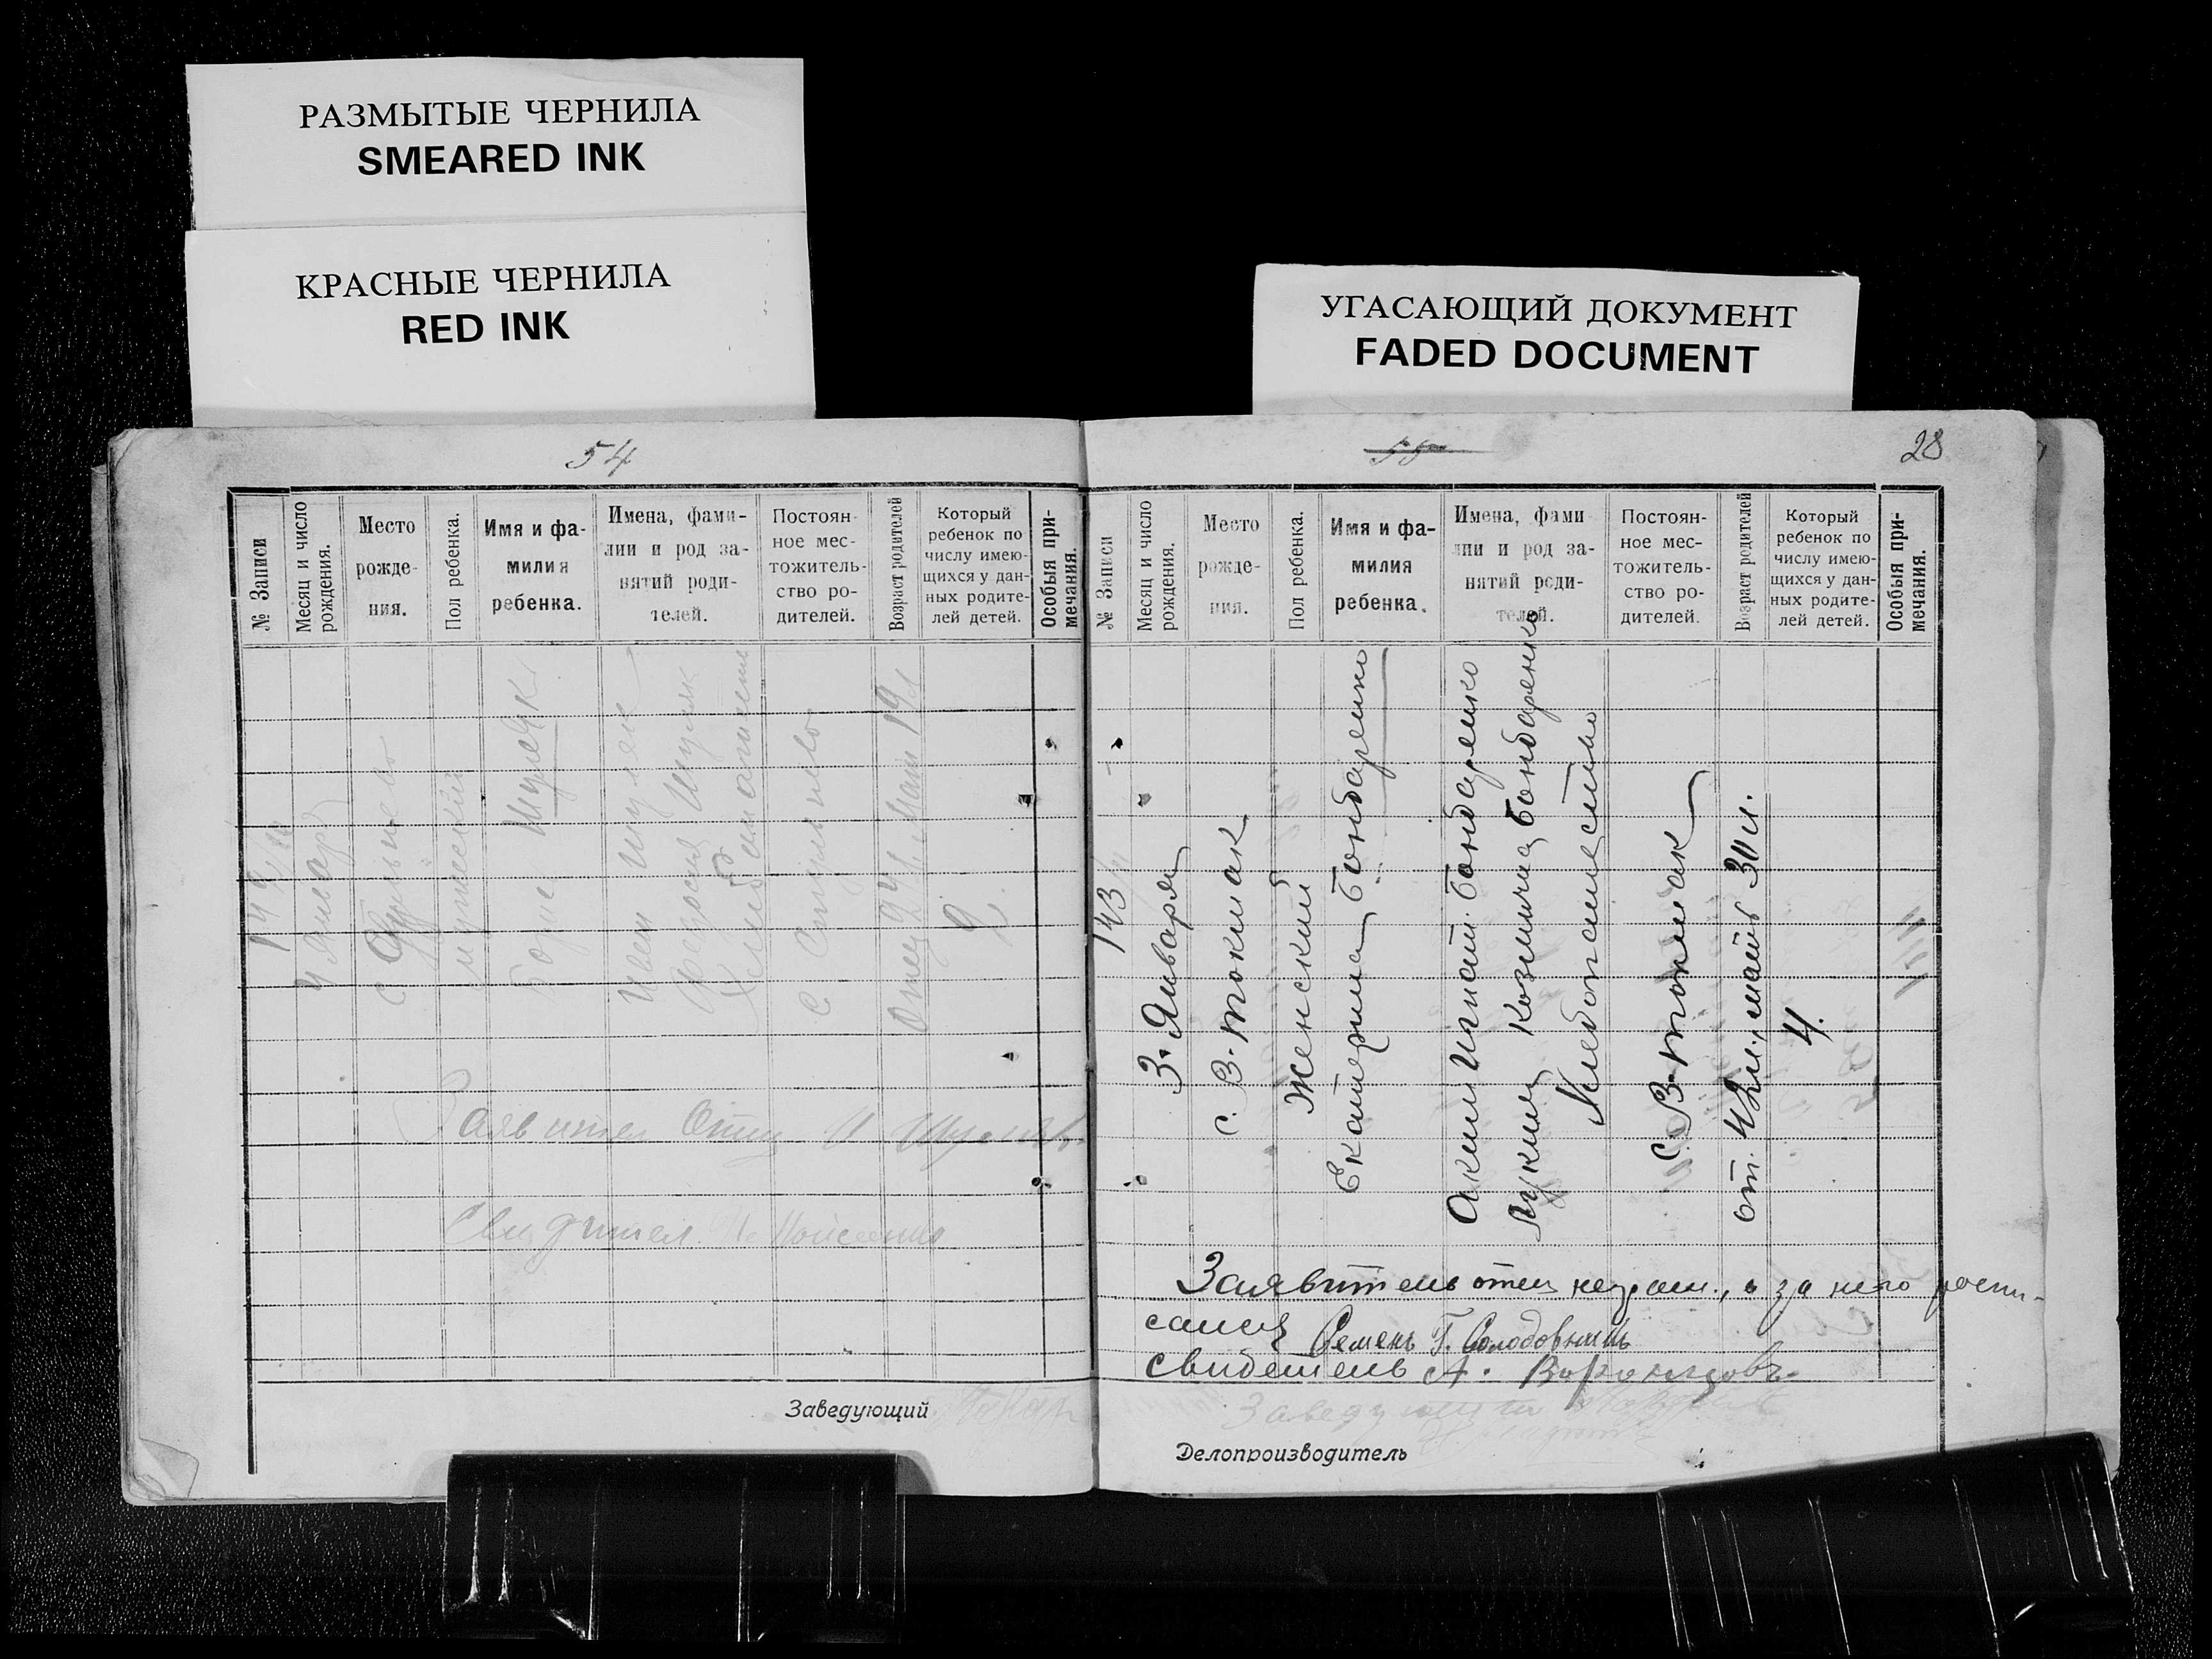 РАЗМЫТЫЕ ЧЕРНИЛА
SMEARED INK
КРАСНЫЕ ЧЕРНИЛА
RED INK
УГАСАЮЩИЙ ДОКУМЕНТ
FADED DOCUMENT
54
№ Записи
Месяц и число
рождения.
Место
рожде-
ния.
Пол ребенка.
Имя и фа-
милия
ребенка.
Имена, фами-
лии и род за-
нятий роди-
телей.
Постоян-
ное мес-
тожитель-
ство ро-
дителей.
Возраст родителей
Который
ребенок по
числу имею-
щихся у дан-
ных родите-
лей детей.
Особыя при-
мечания.
4 Января
с.
мужеский
Борис Шуляк
Иван Шуляк
Федосия Шуляк
с.
Отец 24 л. мат 19 л
2.
Заявител Отец И Шуляк
Свидител
Заведующий
55
28
№ Записи
Месяц и число
рождения.
Место
рожде-
ния.
Пол ребенка.
Имя и фа-
милия
ребенка.
Имена, фами
лии и род за-
нятий роди-
телей.
Постоян-
ное мес-
тожитель-
ство ро-
дителей.
Возраст родителей
Который
ребенок по
числу имею-
щихся у дан-
ных родите-
лей детей.
Особыя при-
мечания.
143
3. Января
с. В. Токмак
Женский
Екатерина Бондаренко
Аким Игнат. Бондаренко
Лукия Козминична Бондаренко
Хлебопашество
с. В. Токмак
от. 42 л., мать 30 л.
4.
Заявитель отец неграм., а за него роспи-
сался Семенъ Г. Солодовникъ
свидетель А. Воронцовъ.
Заведующий
Делопроизводитель